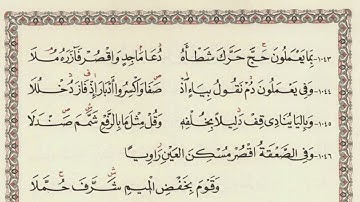 ١٠٤٣- بِمَا يَعْمَلُونَ حَجَّ حَرَّكَ شَطْأَهُ دُعَا مَاجِدٍ وَاقْصُرْ فَآزَرَهُ مُلَا
١٠٤٤- وَفِي يَعْمَلُونَ دُمْ نَقُولُ بِيَاءٍ اذْ صَفَا وَاكْسِرُوا أَدْبَارَ إِذْ فَازَ دُخْلُلَا
١٠٤٥- وَبِالْيَا يُنَادِي قِفْ دَلِيلاً بِخُلْفِهِ وَقُلْ مِثْلُ مَا بِالرَّفْعِ شَمَّمَ صَنْدَلَا
١٠٤٦- وَفِي الصَّعْقَةُ اقْصُرْ مُسْكِنَ الْعَيْنِ رَاوِيًا
وَقَوْمَ بِخَفْضِ الْمِيمِ شَرَّفَ حُمَّلَا